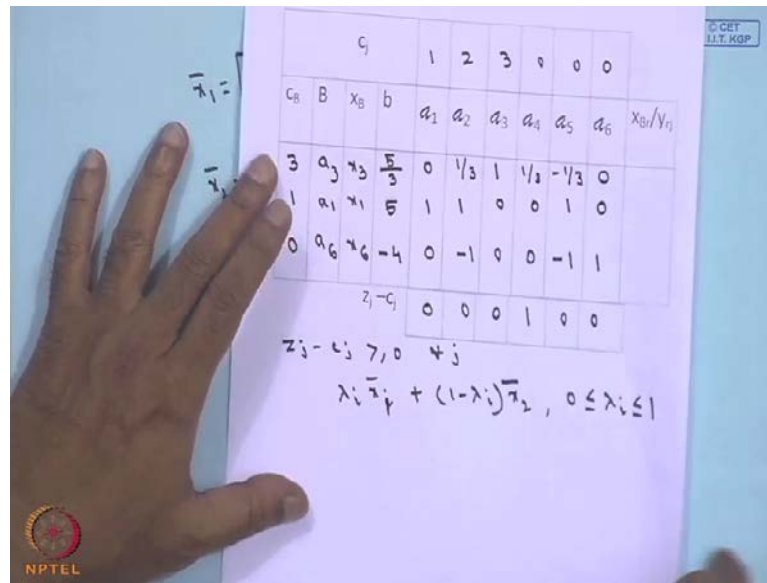 © CET
I.I.T. KGP
x̄₁ =
cⱼ 1 2 3 0 0 0
c_B B x_B b a₁ a₂ a₃ a₄ a₅ a₆ x_Br/y_rj
3 a₃ x₃ 5/3 0 1/3 1 1/3 -1/3 0
1 a₁ x₁ 5 1 1 0 0 1 0
0 a₆ x₆ -4 0 -1 0 0 -1 1
zⱼ-cⱼ 0 0 0 1 0 0
zⱼ - cⱼ ≥ 0 ∀ j
λᵢ x̄ⱼ + (1-λᵢ) x̄₂, 0 ≤ λᵢ ≤ 1
NPTEL